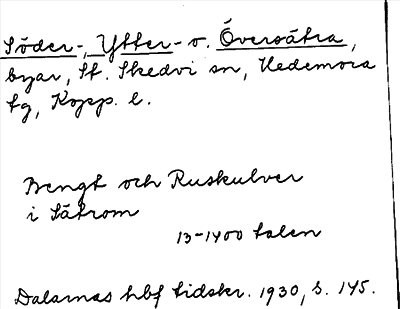 Söder-, Ytter- o. Översätra,
byar, St. Skedvi sn, Hedemora
tg, Kopp. l.
Bengt och Ruskulver
i Sätrom
13-1400 talen
Dalarnas hbf tidskr. 1930, s. 145.